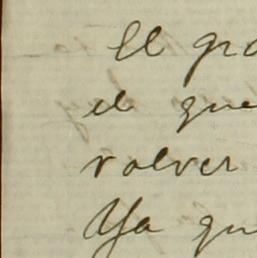 El gra
el que
volver
Ya qu